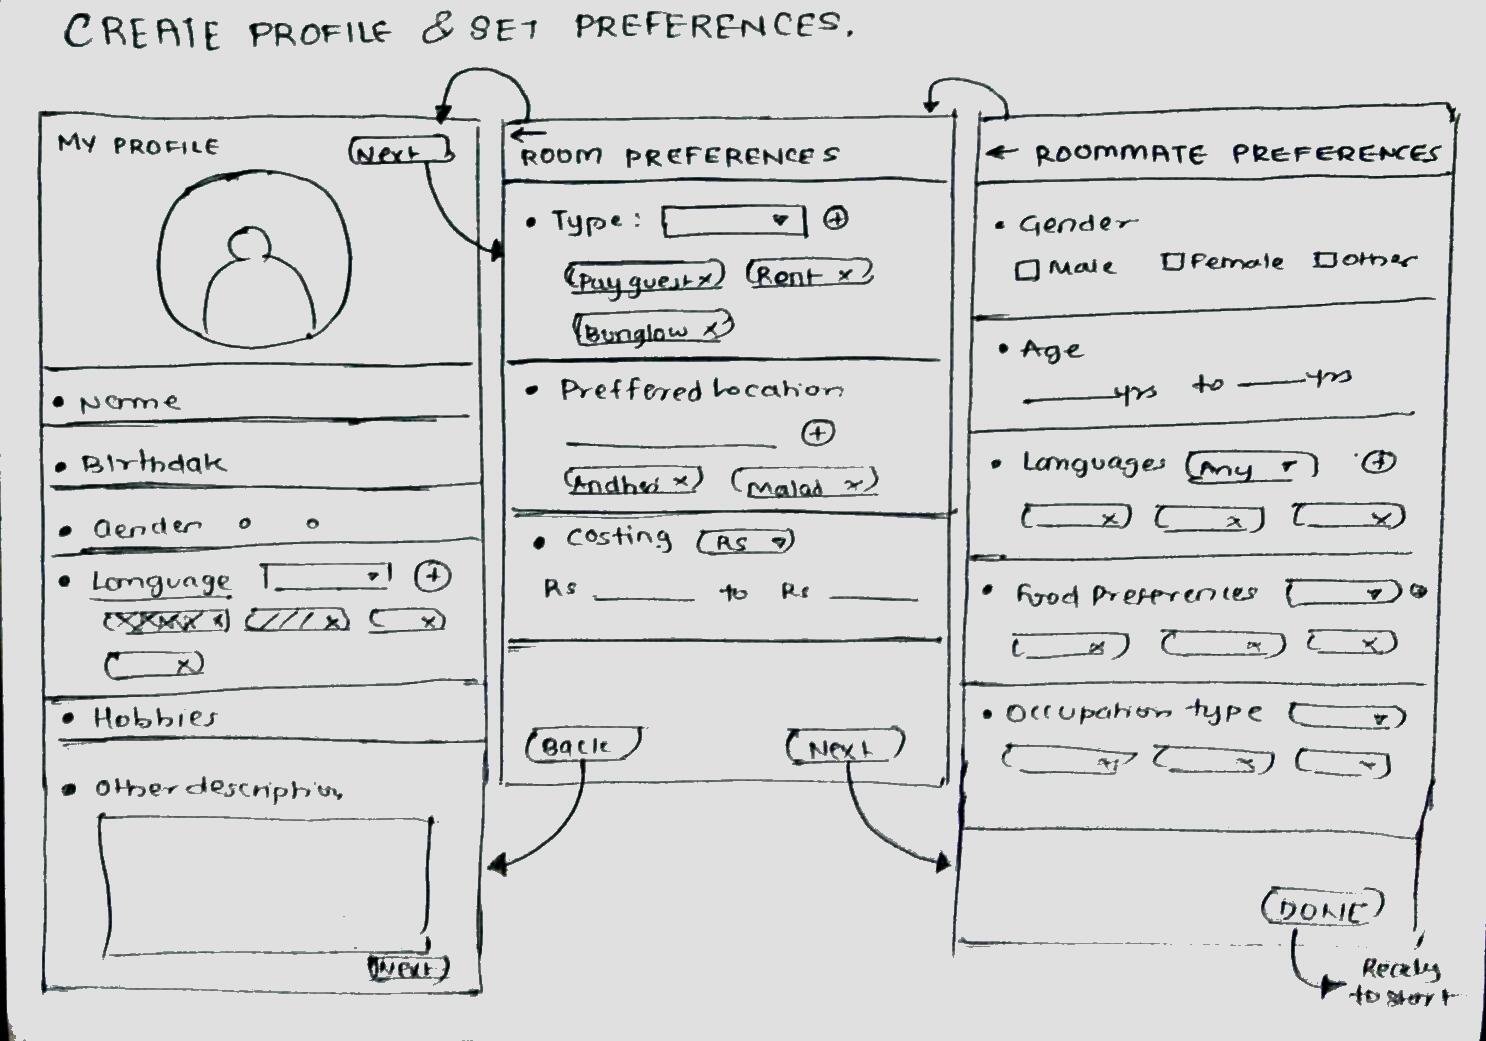 CREATE PROFILE & SET PREFERENCES.
MY PROFILE
Next
• Name
• Birthdate
• Gender
• Language
• Hobbies
• Other description
Next
←
ROOM PREFERENCES
• Type:
Pay guest x
Rent x
Bunglow x
• Preffered Location
Andheri x
Malad x
• Costing Rs
Rs ____ to Rs ____
Back
Next
← ROOMMATE PREFERENCES
• Gender
Male Female Other
• Age
____yrs to ____yrs
• Languages Any
• Food Preferences
• Occupation type
DONE
Ready
to start